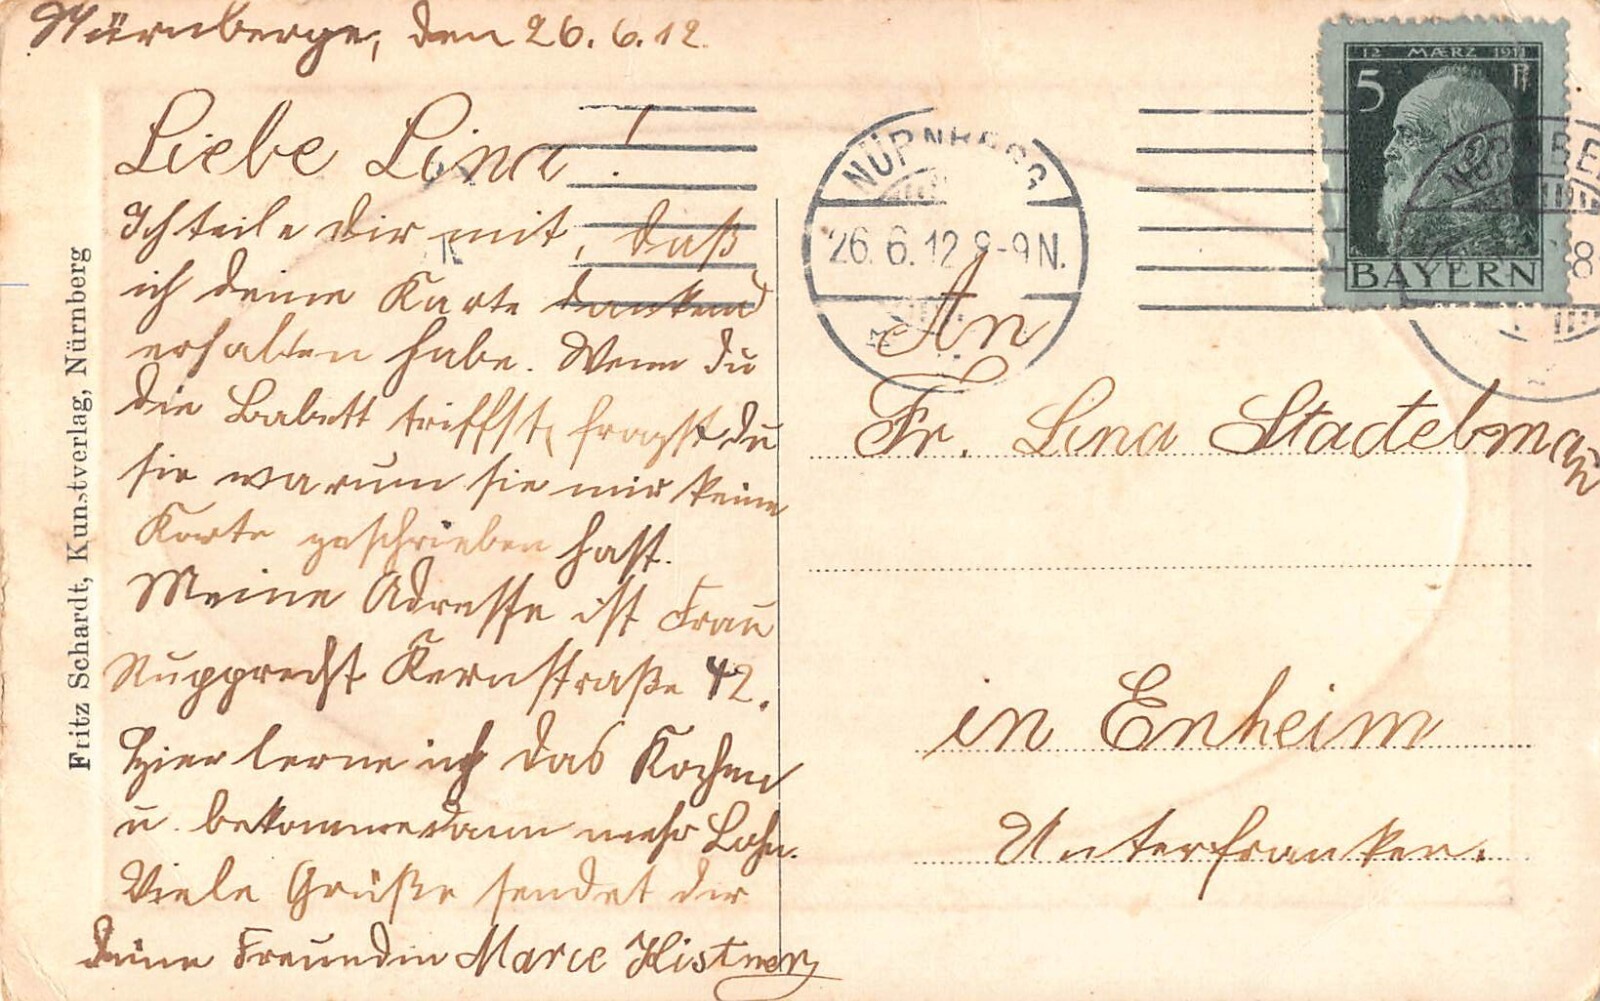 Nürnberge, den 26.6.12.
Liebe Lina!
Ich teile dir mit, daß
ich deine Karte dankend
erhalten habe. Wenn du
die Babett triffst, fragst du
sie warum sie mir keine
Karte geschrieben hast.
Meine Adresse ist Frau
Rupprecht Kernstraße 42.
Hier lerne ich das Kochen
u. bekomme dann mehr Lohn.
Viele Grüße sendet dir
deine Freundin Marie Kistner
Fritz Schardt, Kunstverlag, Nürnberg
NÜRNBERG
26. 6. 12 8-9 N.
12 MÆRZ 1911
5
BAYERN
An
Fr. Lina Stadelmann
in Enheim
Unterfranken.